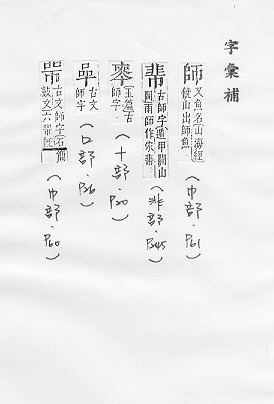 字彙補
師 又魚名山海經
㑹山出師魚
(巾部.P61)
古師字遁甲開山
圖雨師作𠦵
(非部.P245)
玉篇古
師字
(十部.P20)
古文
師字
(口部.P26)
古文師字石
鼓文六師
(巾部.P60)